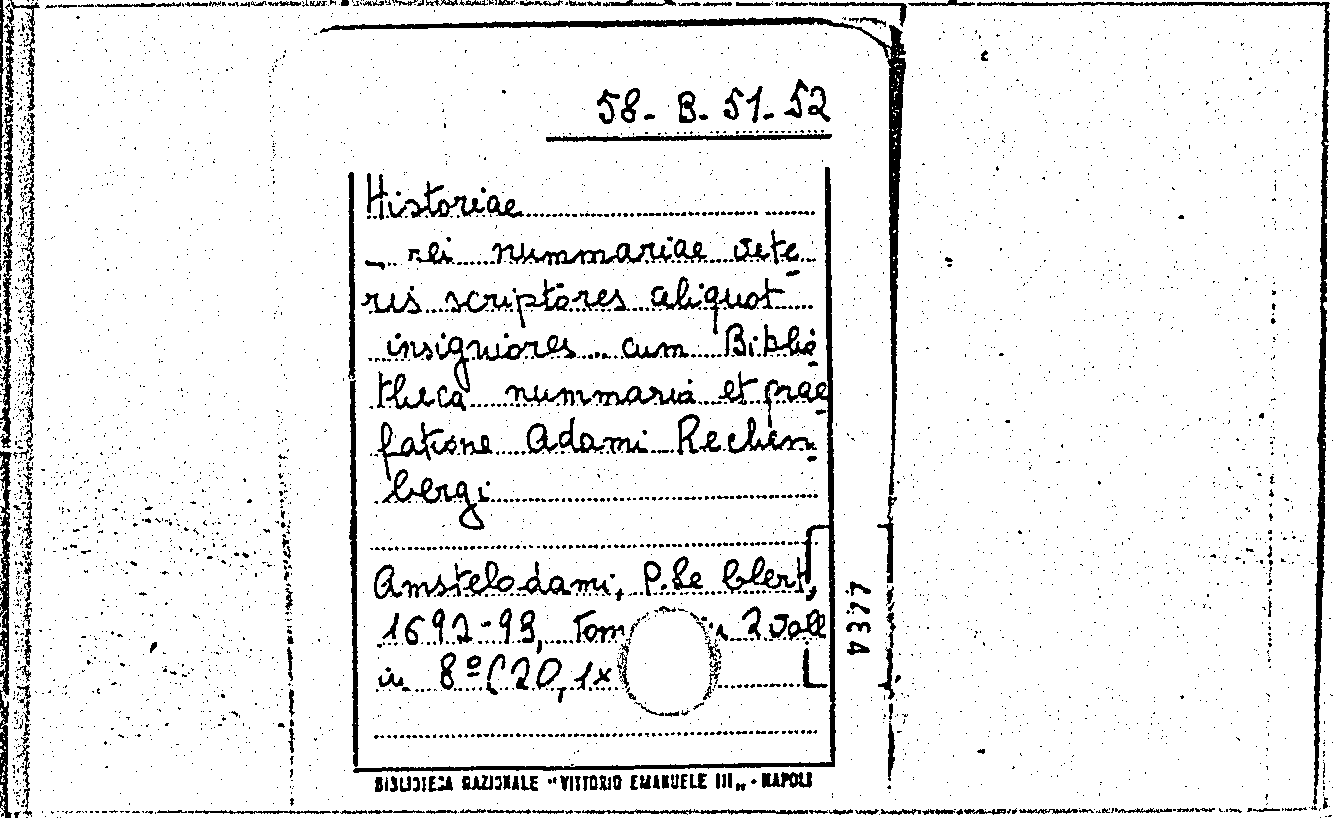 58-B.51-52
Historiae
- rei nummariae vete
ris scriptores aliquot
insigniores cum Biblio
theca nummaria et prae
fatione Adami Rechen
bergi
Amstelodami, P. Le Clerk,
1692-93, Tom 2 voll
in 8º (20, 1x
4377
BIBLIOTECA NAZIONALE "VITTORIO EMANUELE III" - NAPOLI